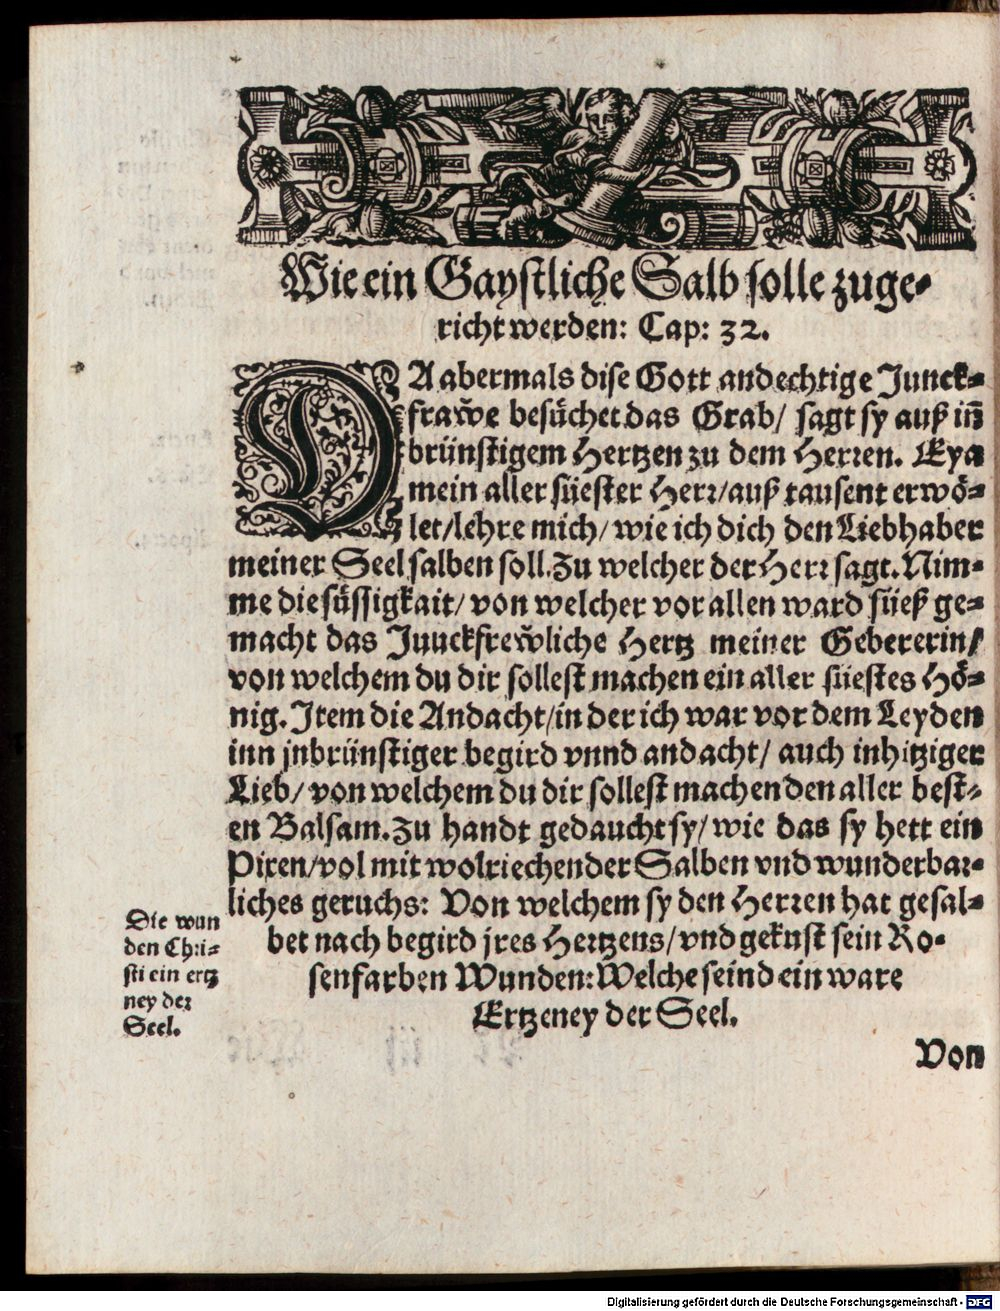 Wie ein Gaystliche Salb solle zuge-
richt werden: Cap: 32.
DA abermals dise Gott andechtige Junck-
fraw̃e besůchet das Grab/ sagt sy auß iñ
brünstigem Hertzen zu dem Herren. Eya
mein aller süester Herr/auß tausent erwö-
let/lehre mich/ wie ich dich den Liebhaber
meiner Seel salben soll. Zu welcher der Herr sagt. Nim-
me die süssigkait/ von welcher vor allen ward süeß ge-
macht das Juuckfrew̃liche Hertz meiner Gebererin/
von welchem du dir sollest machen ein aller süestes Hö-
nig. Item die Andacht/in der ich war vor dem Leyden
inn jnbrünstiger begird vnnd andacht/ auch inhitziger
Lieb/ von welchem du dir sollest machen den aller best-
en Balsam. Zu handt gedaucht sy/ wie das sy hett ein
Pixen/vol mit wolriechender Salben vnd wunderbar-
liches geruchs: Von welchem sy den Herren hat gesal-
bet nach begird jres Hertzens/vnd geknst sein Ro-
senfarben Wunden: Welche seind ein ware
Ertzeney der Seel.
Die wun
den Chri-
sti ein ertz
ney der
Seel.
Von
Digitalisierung gefördert durch die Deutsche Forschungsgemeinschaft - DFG